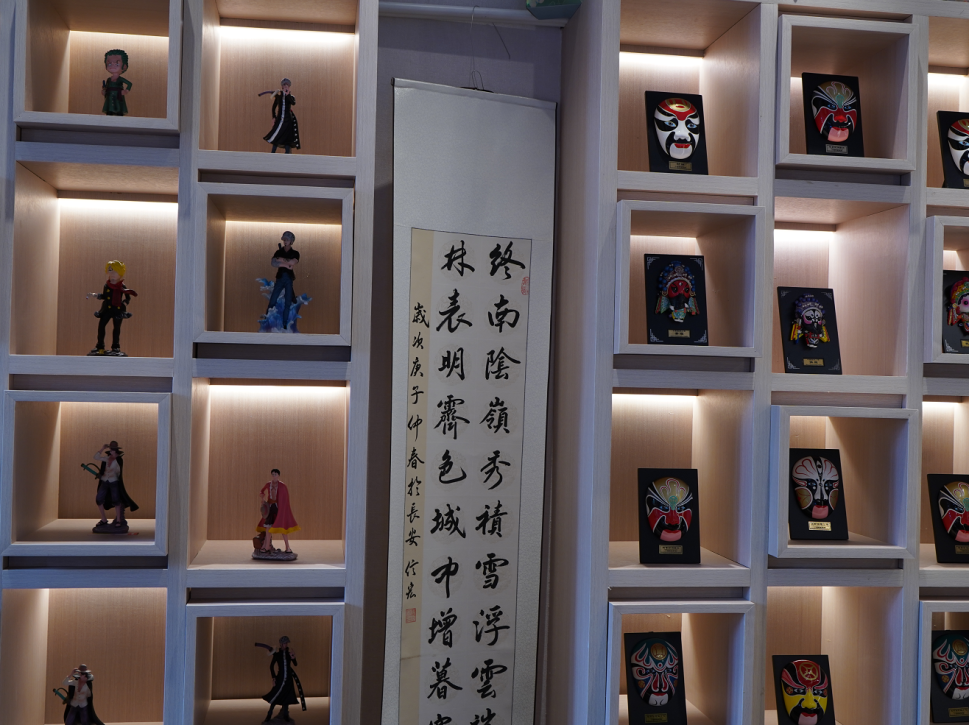 終南陰嶺秀積雪浮雲端
林表明霽色城中增暮寒
歲次庚子仲春於長安信宏